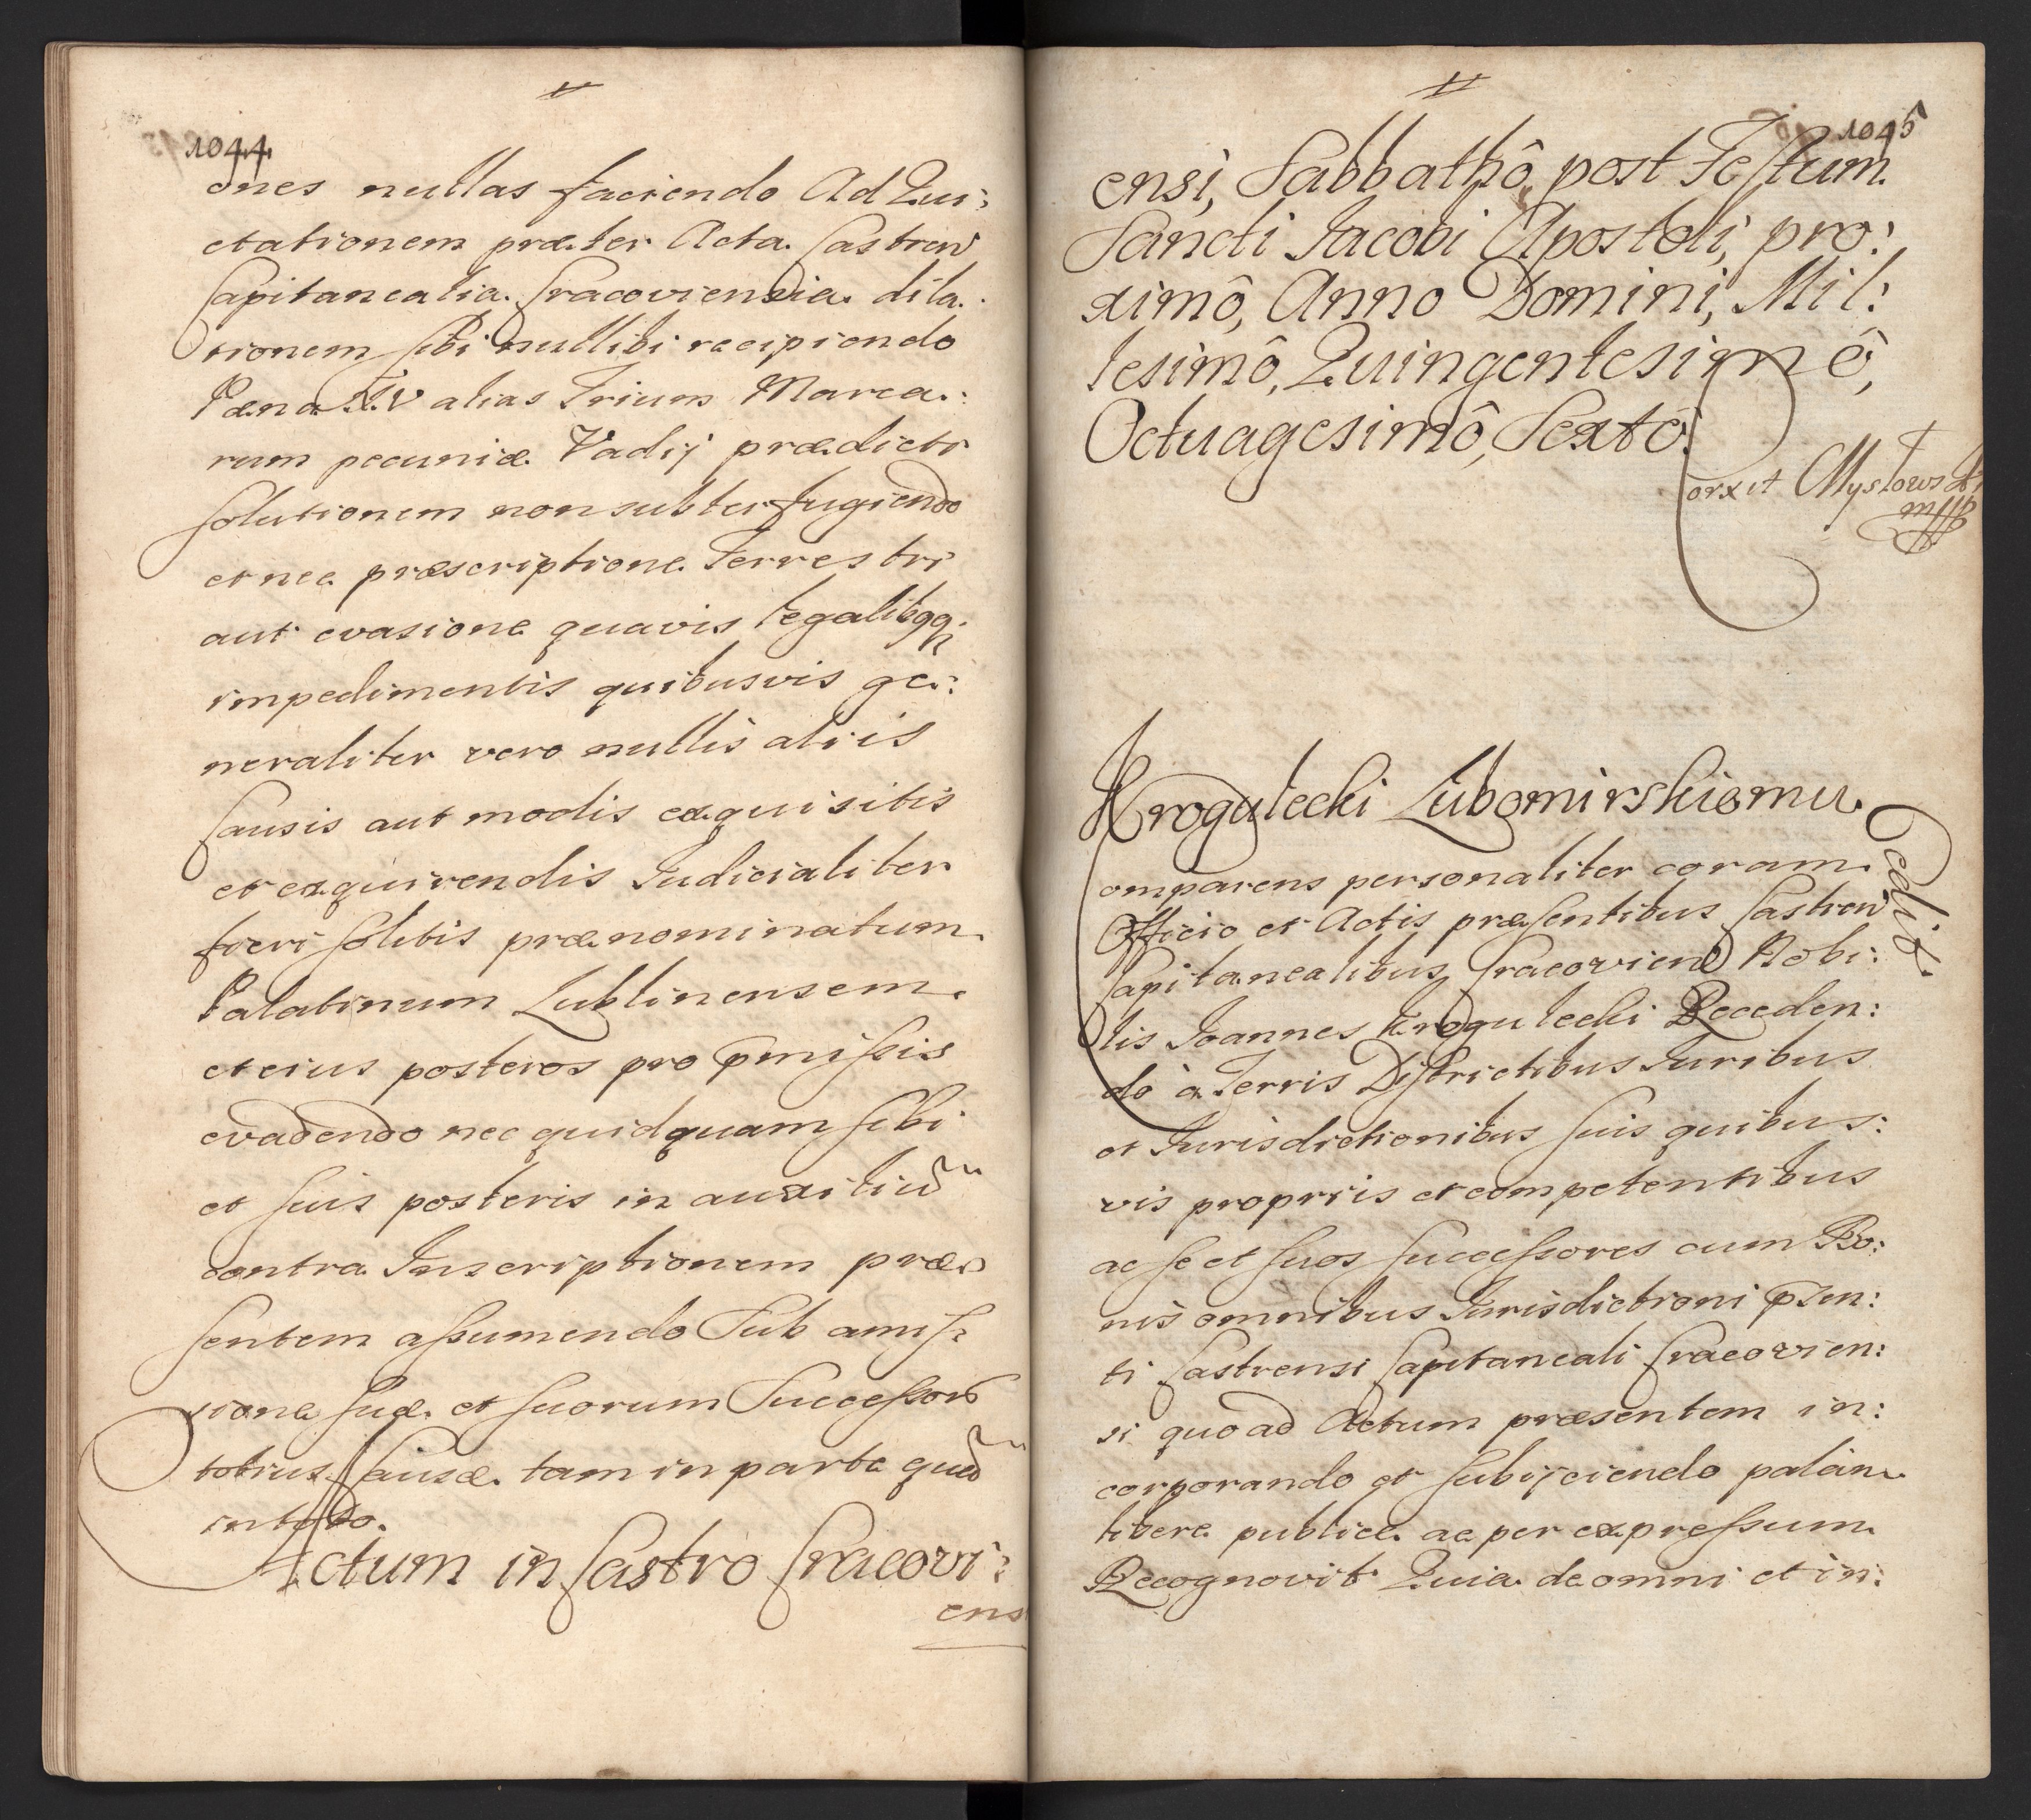 1044
ones nullas faciendo Ad Qui:
etationem præter Acta Castren
Capitanealia Cracoviensia dila:
tionem sibi nullibi recipiendo
Pæna alias Trium Marca:
rum pecuniæ Vadij prædicti
solutionem non subterfugiendo
et nec præscriptione Terrestri
aut evasione quavis legalibqq;
impedimentis quibusvis ge:
neraliter vero nullis aliis
Causis aut modis exquisitis
et exquirendis Judicialiter
fieri solitis prænominatum
Palatinum Lublinensem
et eius posteros pro pmissis
evadendo nec quidquam sibi
et suis posteris in auxiliu
contra Inscriptionem præ:
sentem assumendo Sub amis:
sione suæ et suorum Successor
totius Causæ tam in parte qua
in toto.
Actum in Castro Cracovi:
ens
1045
ensi, Sabbathô post Festum
Sancti Jacobi Apostoli, pro:
ximô, Anno Domini, Mil:
lesimô, Quingentesimô,
Octuagesimô, Sextô.
orxit Mystowski
mpp
Krogulecki Lubomirskiemu
edit
omparens personaliter coram
Officio et Actis præsentibus Castren
Capitanealibus Cracovien Nobi:
lis Joannes Krogulecki Receden:
do à Terris Districtibus Juribus
et Jurisdictionibus suis quibus:
vis propriis et competentibus
ac se et suos successores cum Bo:
nis omnibus Jurisdictioni pzen:
ti Castrensi Capitaneali Cracovien:
si quoad Actum præsentem in:
corporando et subijciendo palam
libere publice ac per expressum
Recognovit Quia de omni et in: